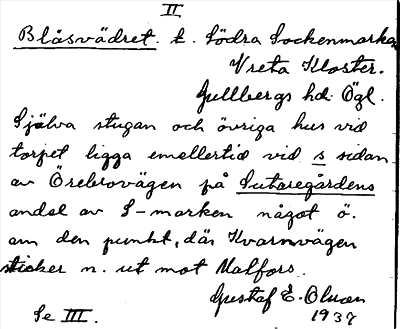 II
Blåsvädret. t. Södra Sockenmarken
Vreta Kloster.
Gullbergs hd. Ögl.
Själva stugan och övriga hus vid
torpet ligga emellertid vid s sidan
av Örebrovägen på Sutaregårdens
andel av S-marken något ö.
om den punkt, där Kvarnvägen
sticker n. ut mot Malfors.
Gustaf E. Olson
1937
Se III.